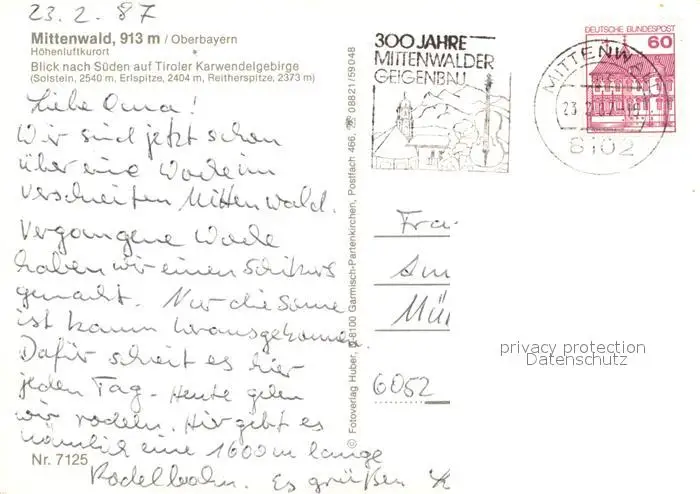 23.2.87
Mittenwald, 913 m / Oberbayern
Höhenluftkurort
Blick nach Süden auf Tiroler Karwendelgebirge
(Solstein, 2540 m, Erlspitze, 2404 m, Reitherspitze, 2373 m)
Liebe Oma!
Wir sind jetzt schon
über eine Woche im
verschneiten Mittenwald.
Vergangene Woche
haben wir einen Skikurs
gemacht. Nur die Sonne
ist kaum herausgekommen.
Dafür schneit es hier
jeden Tag. Heute gehen
wir rodeln. Hier gibt es
nämlich eine 1600 m lange
Rodelbahn. Es grüßen
Nr. 7125
© Fotoverlag Huber, D-8100 Garmisch-Partenkirchen, Postfach 466, ☎ 08821/59048
300 JAHRE
MITTENWALDER
GEIGENBAU
DEUTSCHE BUNDESPOST
60
MITTENW
23.2.87
8102
Fra
Am
Mü
6052
privacy protection
Datenschutz